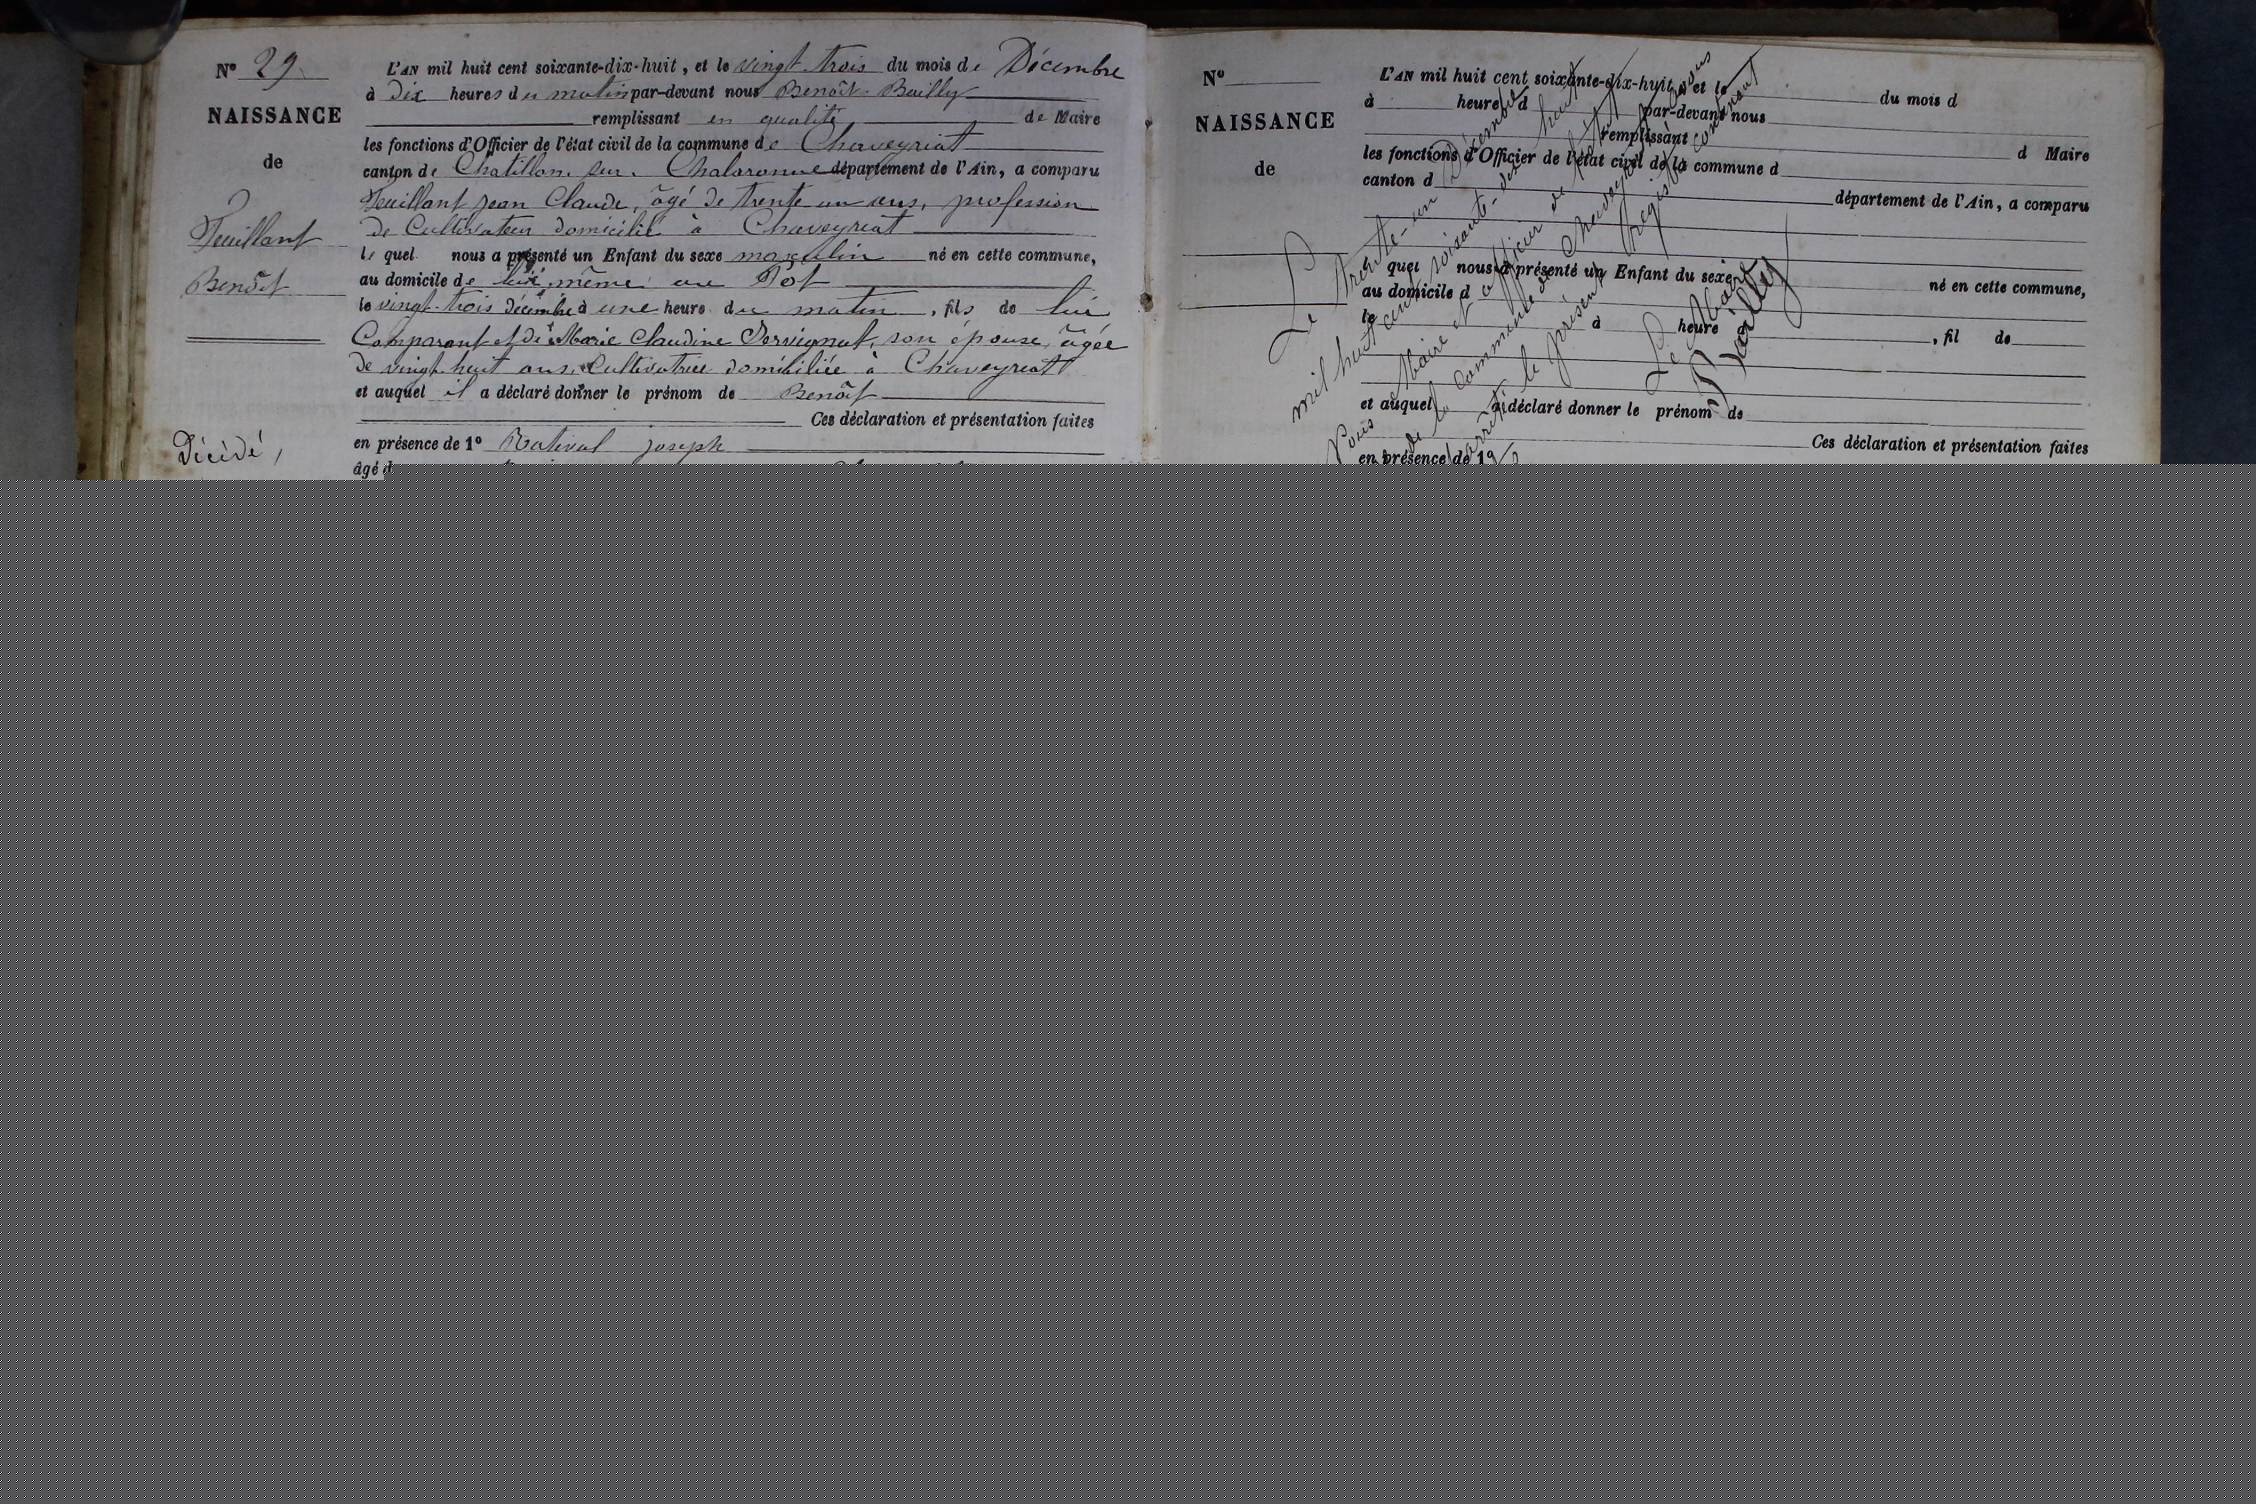 N° 29
NAISSANCE
de
Feuillant
Benoît
Décédé,
L'AN mil huit cent soixante-dix-huit, et le vingt-trois du mois de Décembre
à dix heures du matin par-devant nous Benoît Bailly
remplissant en qualité de Maire
les fonctions d'Officier de l'état civil de la commune de Chaveyriat
canton de Chatillon sur Chalaronne département de l'Ain, a comparu
Feuillant Jean Claude, âgé de trente un ans, profession
de Cultivateur domicilié à Chaveyriat
le quel nous a présenté un Enfant du sexe masculin né en cette commune,
au domicile de lui même au
le vingt-trois décembre à une heure du matin, fils de lui
Comparant et de Marie Claudine son épouse, âgée
de vingt huit ans, Cultivatrice domiciliée à Chaveyriat
et auquel il a déclaré donner le prénom de Benoît
Ces déclaration et présentation faites
en présence de 1° Joseph
âgé d
N°
NAISSANCE
de
L'AN mil huit cent soixante-dix-huit, et le du mois d
à heure d par-devant nous
remplissant d Maire
les fonctions d'Officier de l'état civil de la commune d
canton d département de l'Ain, a comparu
l quel nous a présenté un Enfant du sexe né en cette commune,
au domicile d
le à heure d , fil de
et auquel a déclaré donner le prénom de
Ces déclaration et présentation faites
en présence de 1°
Le trente-un Décembre
mil huit cent soixante-dix huit
Nous Maire et officier de l'état civil
de la commune de Chaveyriat
arrêté le présent Registre contenant
Le Maire
Bailly